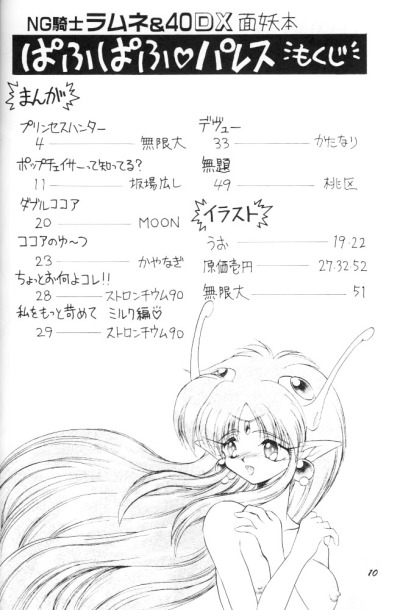 NG騎士ラムネ&40DX 面妖本
ぱふぱふ♡パレス もくじ
まんが
プリンセスハンター
4 ―― 無限大
ポップチェイサーって知ってる?
11 ―― 坂場広し
ダブルココア
20 ―― MOON
ココアのゆ〜つ
23 ―― かやなぎ
ちょっとお何よコレ!!
28 ―― ストロンチウム90
私をもっと苛めて ミルク編♡
29 ―― ストロンチウム90
デヴュー
33 ―― かたなり
無題
49 ―― 桃区
イラスト
うお ―― 19・22
原価壱円 ―― 27・32・52
無限大 ―― 51
10